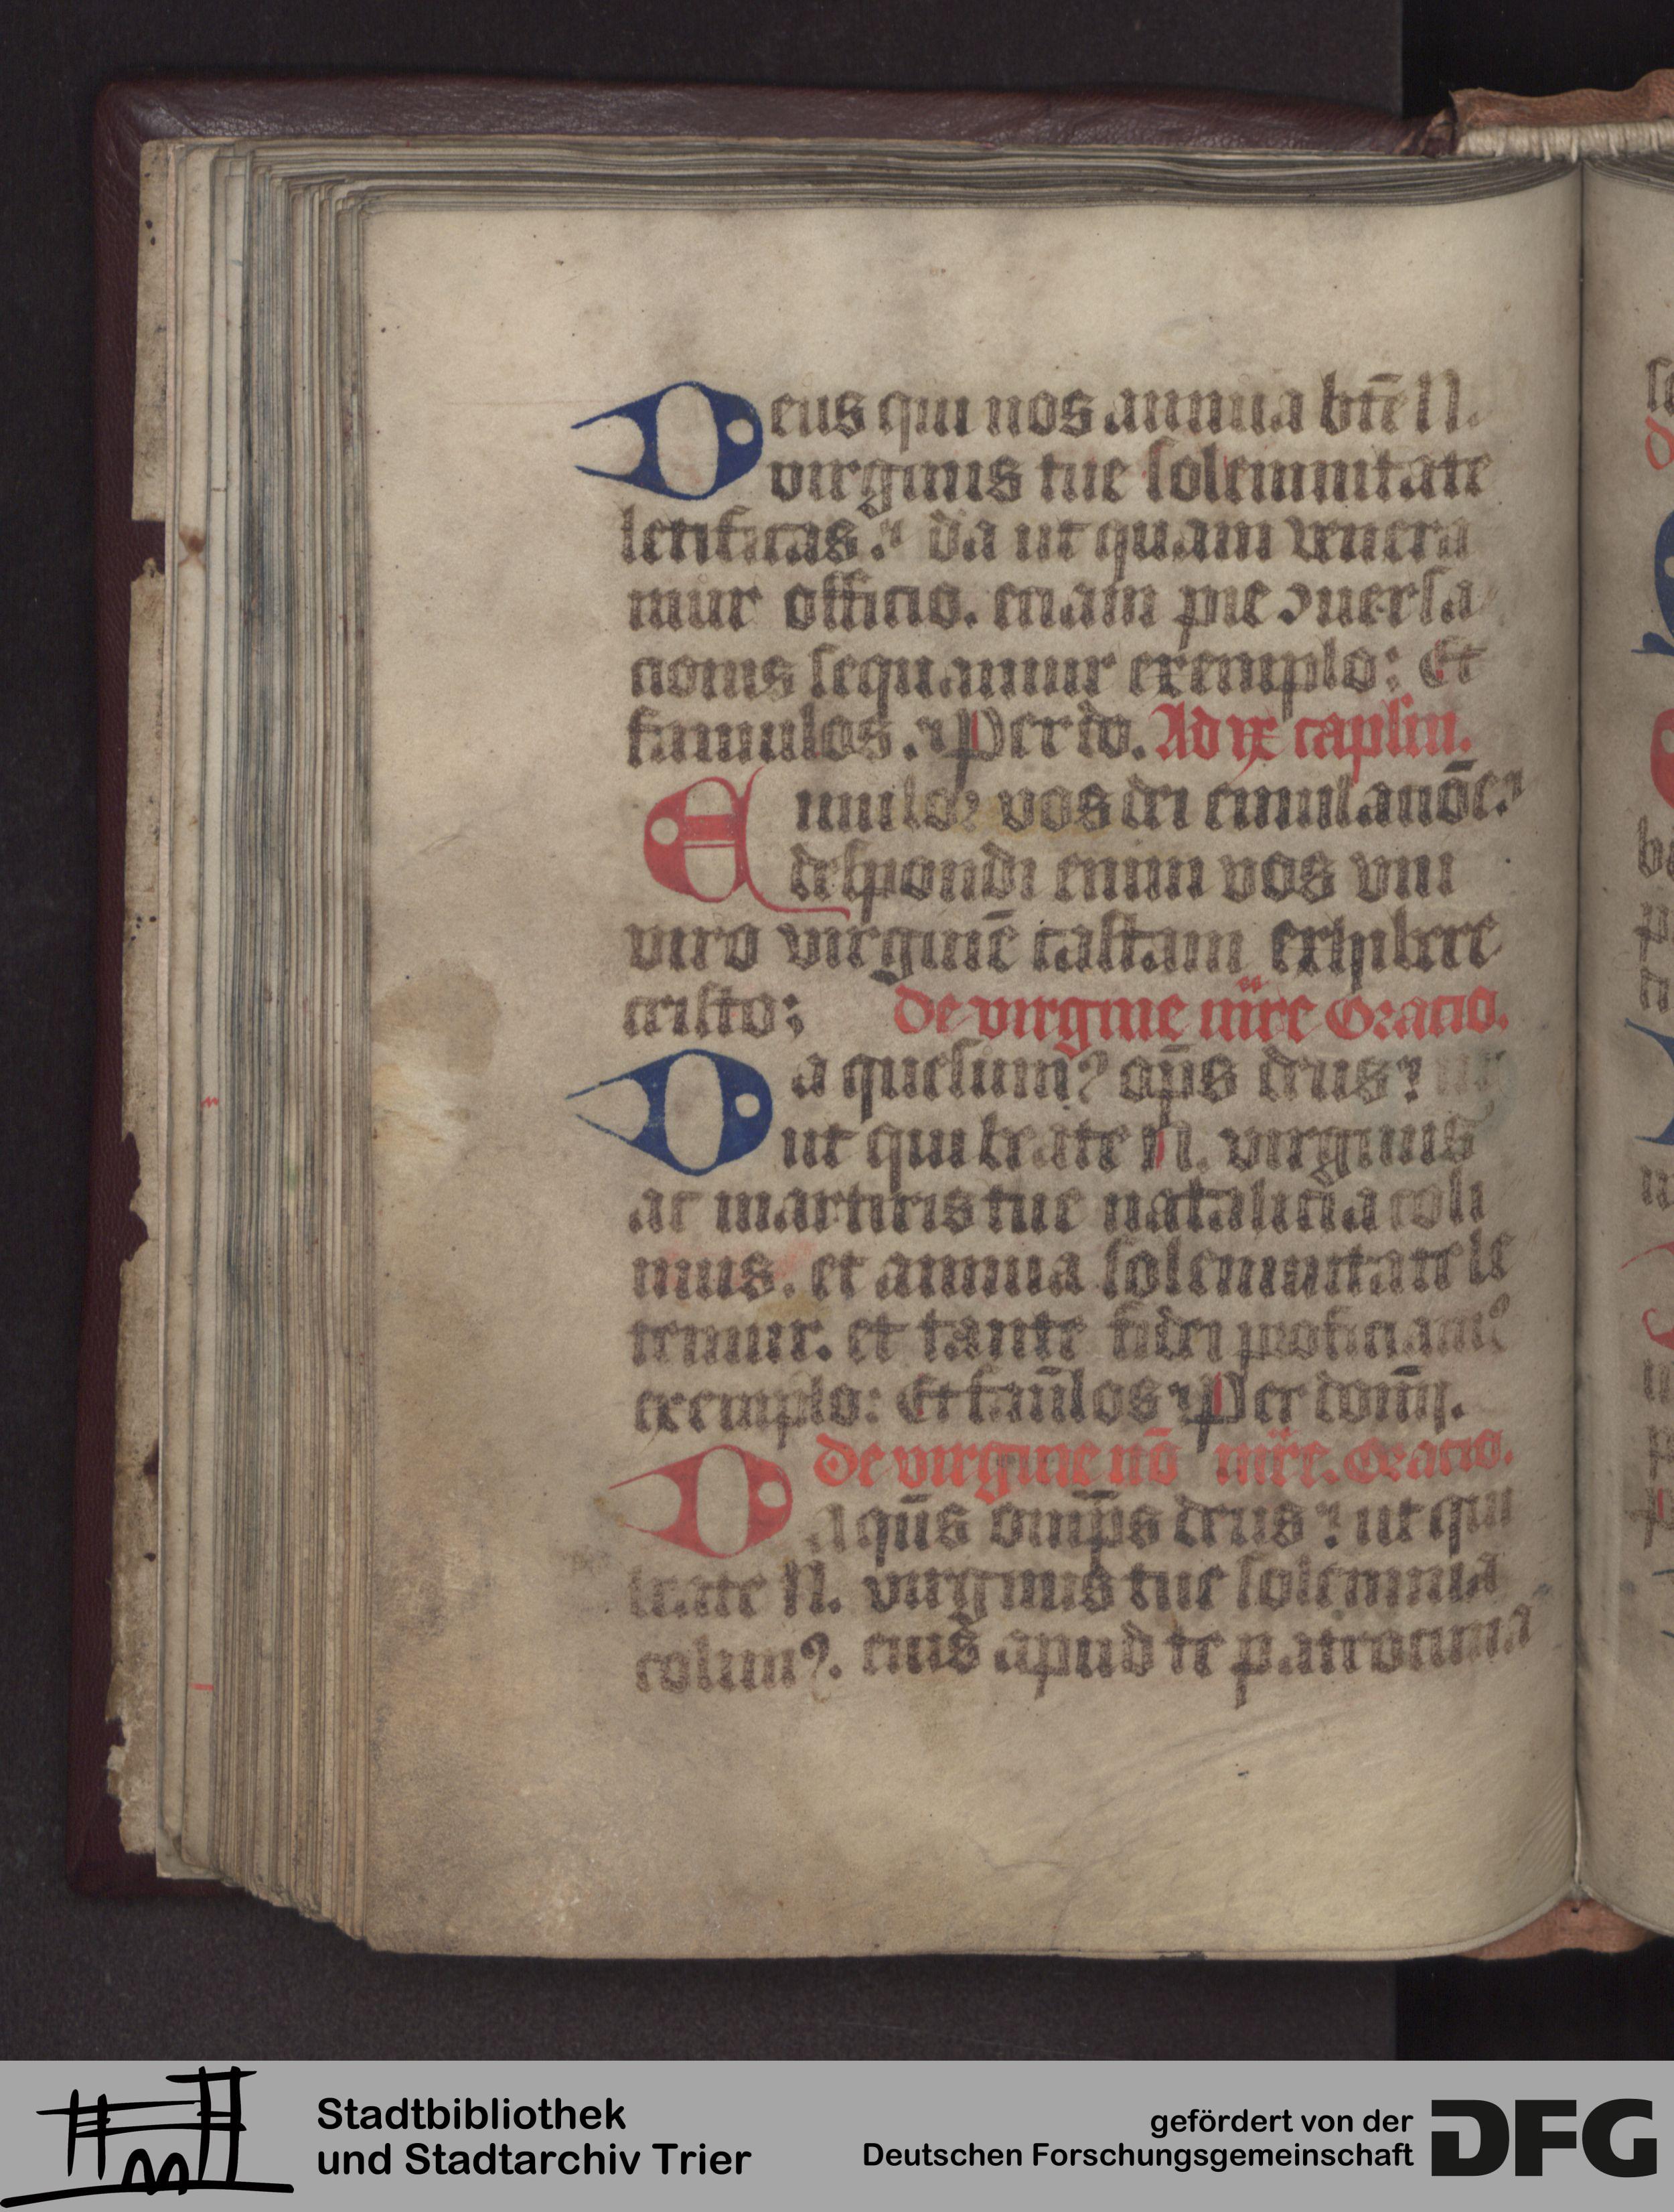 Deus qui nos annua bt̄e N.
virginis tue solempnitate
letificas? da ut quam venera
mur officio. etiam pie ꝯuersa
cionis sequamur exemplo: Et
famulos. ⁊ Per do. Ad ix capłm.
Emulor vos dei emulatiōe?
despondi enim vos vni
viro virginē castam exhibere
cristo: De virgine m̄re Oracio.
Da quesumꝰ om̄ps deus?
ut qui beate N. virginis
ac martiris tue natalicia coli
mus. et annua solempnitate le
temur. et tante fidei proficiamꝰ
exemplo: Et fam̄los ⁊ Per domı̄.
De virgine nō m̄re. Oracio.
Da qūs omp̄s deus? ut qui
beate N. virginis tue solempnia
colimꝰ. eius apud te patrocinia
Stadtbibliothek
und Stadtarchiv Trier
gefördert von der
Deutschen Forschungsgemeinschaft
DFG